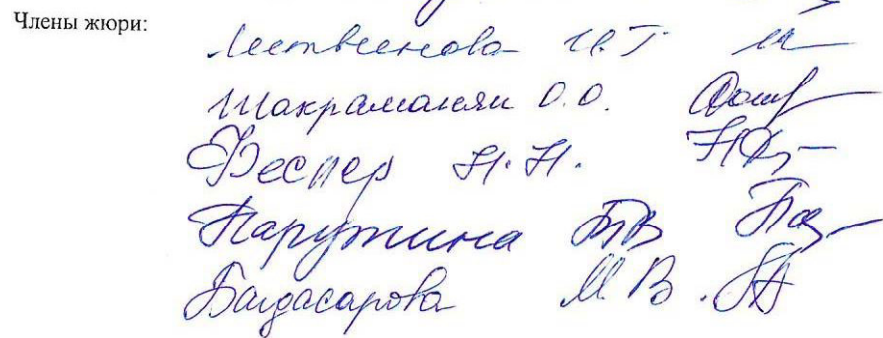 Члены жюри:
Литвинова И.Г.
Шакраманян О.О.
Феспер Н.Н.
Парутина Т.В.
Багдасарова М.В.